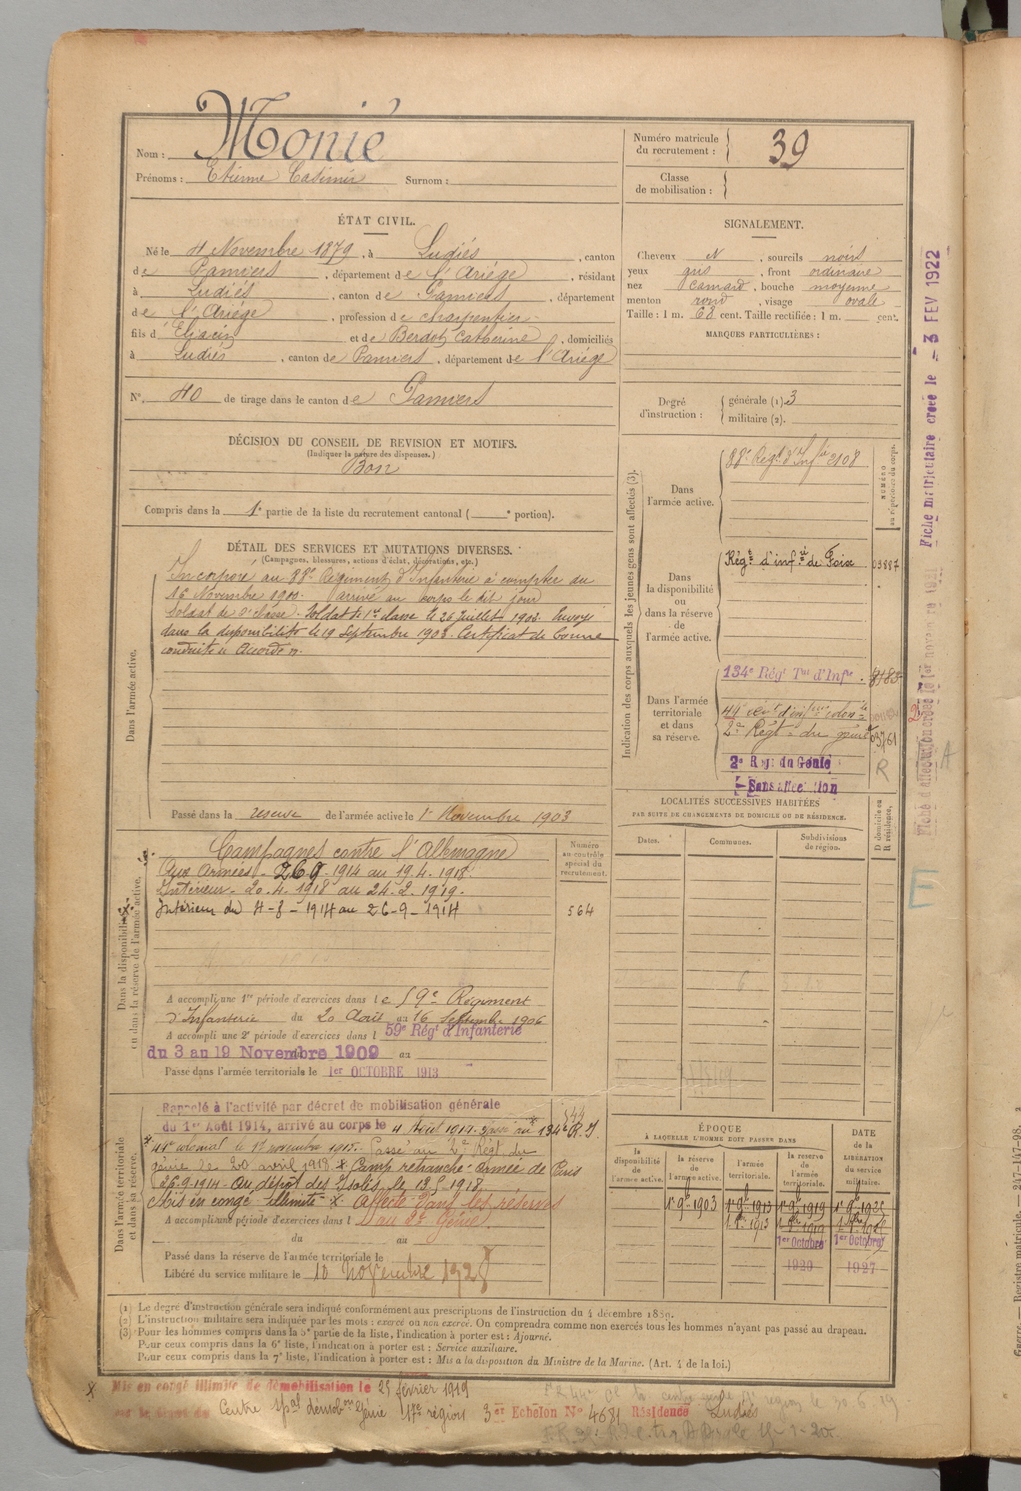 Nom : Monié
Prénoms : Etienne Casimir Surnom :
Numéro matricule du recrutement : 39
Classe de mobilisation :
ÉTAT CIVIL.
Né le 4 Novembre 1879, à Ludiés, canton
de Pamiers, département de l'Ariége, résidant
à Ludiés, canton de Pamiers, département
de l'Ariége, profession de charpentier
fils d'Eljacin et de Berdot Catherine, domiciliés
à Ludiés, canton de Pamiers, département de l'Ariége
N°. 40 de tirage dans le canton de Pamiers
SIGNALEMENT.
Cheveux N, sourcils noirs
yeux gris, front ordinaire
nez camard, bouche moyenne
menton rond, visage ovale
Taille : 1 m. 68 cent. Taille rectifiée : 1 m. cent.
MARQUES PARTICULIÈRES :
Degré d'instruction : générale (1) 3
militaire (2).
DÉCISION DU CONSEIL DE REVISION ET MOTIFS.
(Indiquer la nature des dispenses.)
Bon
Compris dans la 1e partie de la liste du recrutement cantonal ( e portion).
DÉTAIL DES SERVICES ET MUTATIONS DIVERSES.
(Campagnes, blessures, actions d'éclat, décorations, etc.)
Dans l'armée active.
Incorporé au 88e Régiment d'Infanterie à compter du
16 Novembre 1900. arrivé au corps le dit jour
Soldat de 2e classe. Soldat de 1re classe le 26 Juillet 1902. Envoyé
dans la disponibilité le 19 Septembre 1903. Certificat de bonne
conduite "Accordé".
Passé dans la réserve de l'armée active le 1er Novembre 1903
Indication des corps auxquels les jeunes gens sont affectés (3).
NUMÉRO au répertoire du corps.
Dans l'armée active.
88e Régt d'Infie 2108
Dans la disponibilité ou dans la réserve de l'armée active.
Régt d'infie de Foix 03887
Dans l'armée territoriale et dans sa réserve.
134e Régt Tal d'Infie
44e Régt d'infie colon
2e Régt du génie 03761
R
2e Régt du Génie
Sans affectation
LOCALITÉS SUCCESSIVES HABITÉES
PAR SUITE DE CHANGEMENTS DE DOMICILE OU DE RÉSIDENCE.
Dates. Communes. Subdivisions de région. D domicile ou R résidence.
Dans la disponibilité ou dans la réserve de l'armée active.
Numéro au contrôle spécial du recrutement.
Campagnes contre l'Allemagne
Aux Armées - 26 9 1914 au 19.4.1918.
Intérieur - 20.4.1918 au 24.2.1919.
Intérieur du 4-8-1914 au 26-9-1914
564
A accompli une 1re période d'exercices dans le 59e Régiment
d'Infanterie du 20 Août au 16 Septembre 1906
A accompli une 2e période d'exercices dans l 59e Régt d'Infanterie
du 3 au 19 Novembre 1909 au
Passé dans l'armée territoriale le 1er OCTOBRE 1913
Dans l'armée territoriale et dans sa réserve.
Rappelé à l'activité par décret de mobilisation générale
du 1er Août 1914, arrivé au corps le 4 Août 1914. Passé au 134e R.I.
44e colonial le 17 novembre 1915. Passé au 2e Régt du
génie le 20 avril 1918. * Camp retranché - Armée de Paris
26.9.1914 - Au dépôt des Isolés le
Mis en congé illimité * Affecté dans les réserves
au 2e Génie.
A accompli une période d'exercices dans l
du au
Passé dans la réserve de l'armée territoriale le
Libéré du service militaire le 10 novembre 1928
ÉPOQUE
À LAQUELLE L'HOMME DOIT PASSER DANS
DATE DE LA LIBÉRATION du service militaire.
la disponibilité de l'armée active. la réserve de l'armée active. l'armée territoriale. la réserve de l'armée territoriale.
1er 9bre 1903 1er 9bre 1913 1er 9bre 1919 1er 9bre 1925
1er Octobre 1er Octobre
1920 1927
(1) Le degré d'instruction générale sera indiqué conformément aux prescriptions de l'instruction du 4 décembre 1889.
(2) L'instruction militaire sera indiquée par les mots : exercé ou non exercé. On comprendra comme non exercés tous les hommes n'ayant pas passé au drapeau.
(3) Pour les hommes compris dans la 5e partie de la liste, l'indication à porter est : Ajourné.
Pour ceux compris dans la 6e liste, l'indication à porter est : Service auxiliaire.
Pour ceux compris dans la 7e liste, l'indication à porter est : Mis à la disposition du Ministre de la Marine. (Art. 4 de la loi.)
* Mis en congé illimité de démobilisation le 25 février 1919
Centre spal démobon Génie 17e région 3er Echelon No 4681 Résidence Ludiés
Fiche matriculaire créée le - 3 FEV 1922
Guerre. — Registre matricule. — 247-147-98.